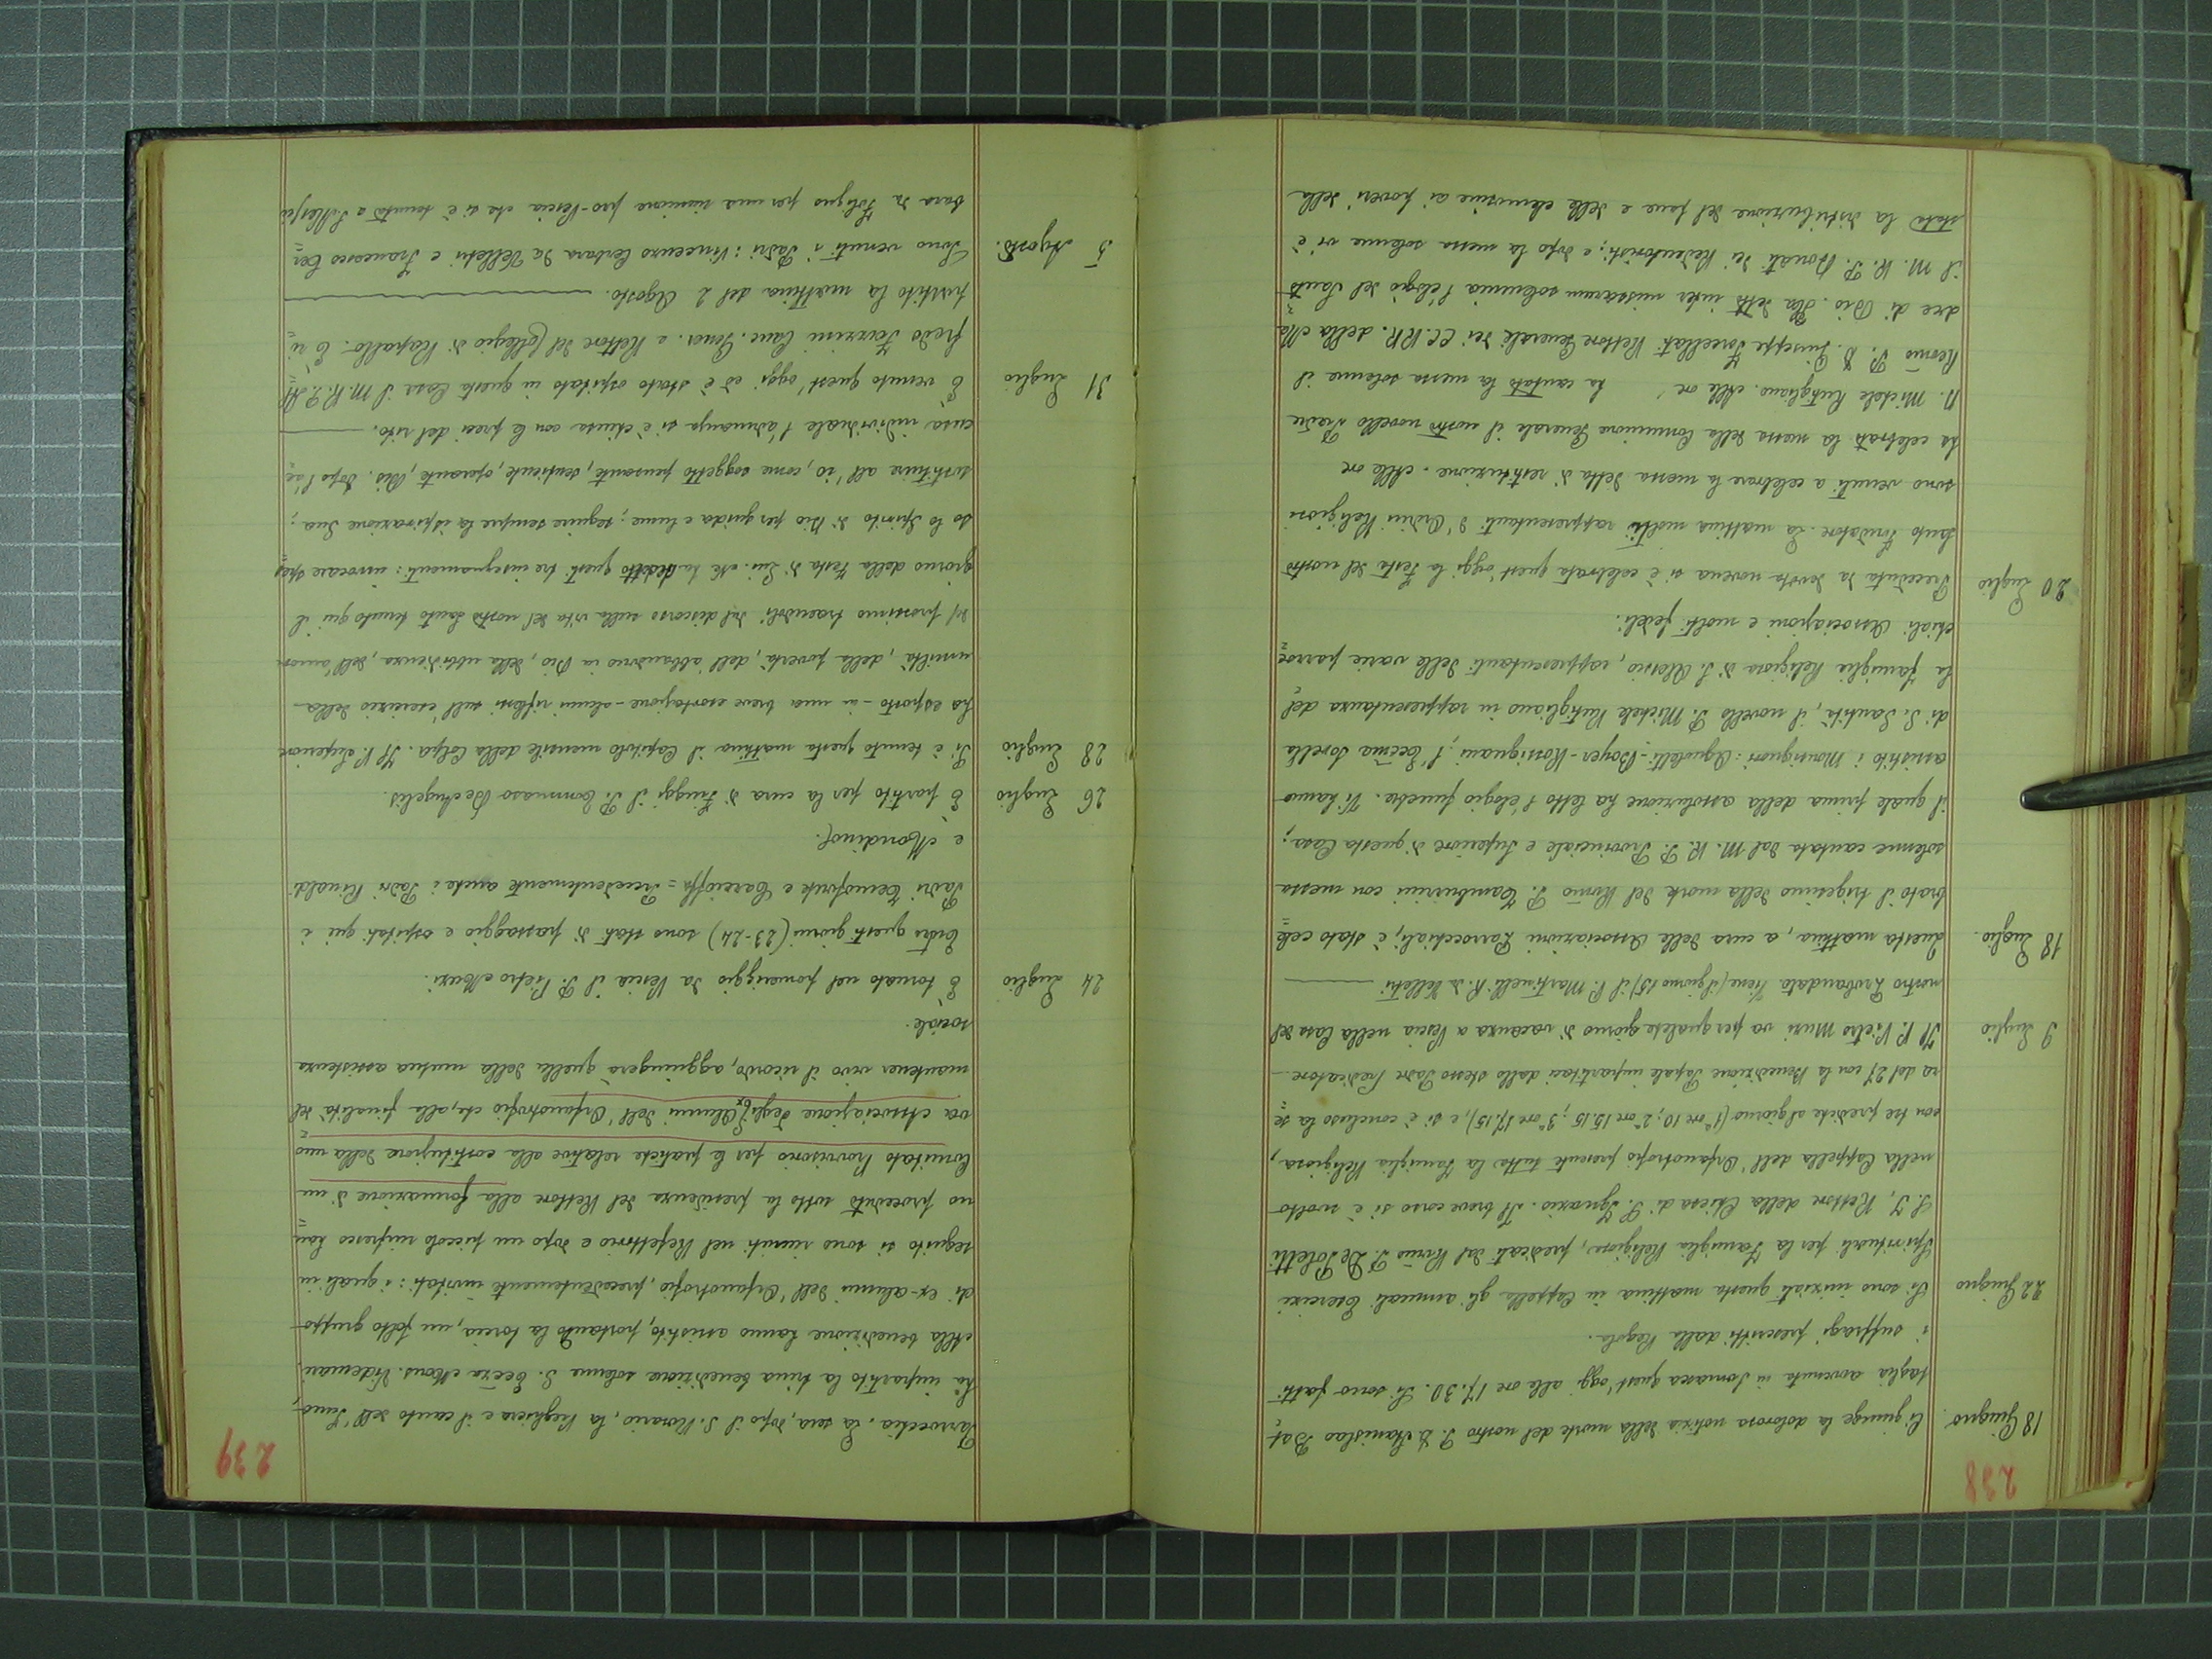 238
18 Giugno Ci giunge la dolorosa notizia della morte del nostro P. D. Stanislao Bat=
taglia avvenuta in Somasca quest'oggi alle ore 17.30. Si sono fatti
i suffragi prescritti dalla Regola.
22 Giugno Si sono iniziati questa mattina in Cappella gli annuali Esercizi
Spirituali per la Famiglia Religiosa, predicati dal Rev.mo P. De Poletti
S. J. Rettore della Chiesa di S. Ignazio. Il breve corso si è svolto
nella Cappella dell'Orfanotrofio presente tutta la Famiglia Religiosa,
con tre prediche al giorno (1ª ore 10; 2ª ore 15.15; 3ª ore 17.15), e si è concluso la se=
ra del 27 con la Benedizione Papale impartitaci dallo stesso Padre Predicatore
9 Luglio Il P. Pietro Muzi va per qualche giorno di vacanza a Pescia nella Casa del
nostro Probandato. Viene (il giorno 15) il P. Martinelli R. da Velletri
18 Luglio. Questa mattina, a cura delle Associazioni Parrocchiali, è stato cele=
brato il trigesimo della morte del Rev.mo P. Tamburrini con messa
solenne cantata dal M. R. P. Provinciale e Superiore di questa Casa;
il quale prima della assoluzione ha letto l'elogio funebre. Vi hanno
assistito i Monsignori: - Boyer - Rossignani; l'Ecc.ma Sorella
di S. Santità, il novello P. Michele Rutigliano in rappresentanza del=
la famiglia Religiosa di S. Alessio, rappresentanti delle varie parroc=
chiali Associazioni e molti fedeli.
20 Luglio Preceduta da devota novena si è celebrata quest'oggi la Festa del nostro
Santo Fondatore. La mattina molti rappresentanti d'Ordini Religiosi
sono venuti a celebrare la messa detta di restituzione. Alle ore
ha celebrato la messa della Comunione Generale il nostro novello Padre
D. Michele Rutigliano. Alle ore ha cantato la messa solenne il
Rev.mo P. D. Giuseppe Forcellati Rettore Generale dei CC. RR. della Ma=
dre di Dio. Ha detto inter missarum solemnia l'elogio del Santo
il M. R. P. Donati dei Redentoristi; e dopo la messa solenne vi è
stata la distribuzione del pane e delle elemosine ai poveri della
239
Parrocchia. La sera, dopo il S. Rosario, la Preghiera e il canto dell'Inno,
ha impartito la trina benedizione solenne S. Ecc.za Mons. Videmari.
Alla benedizione hanno assistito, portando la torcia, un folto gruppo
di ex-alunni dell'Orfanotrofio, precedentemente invitati: i quali in
seguito si sono riuniti nel Refettorio e dopo un piccolo rinfresco han=
no proceduto sotto la presidenza del Rettore alla formazione di un
Comitato Provvisorio per le pratiche relative alla costituzione della nuo=
va Associazione degli Ex Alunni dell'Orfanotrofio che, alla finalità del
mantener vivo il ricordo, aggiungerà quella della mutua assistenza
sociale.
24 Luglio È tornato nel pomeriggio da Pescia il P. Pietro Muzi.
Entro questi giorni (23-24) sono stati di passaggio e ospitati qui i
Padri Temofonte e Carrioffa = Precedentemente anche i Padri Rinaldi
e Mondino.
26 Luglio È partito per la cura di Fiuggi il P. Tommaso De Angelis.
28 Luglio Si è tenuto questa mattina il Capitolo mensile della Colpa. Il P. Superiore
ha esposto - in una breve esortazione - alcuni riflessi sull'esercizio della
umiltà, della povertà, dell'abbandono in Dio, della ubbidienza, dell'amore
del prossimo traendoli dal discorso sulla vita del nostro Santo tenuto qui il
giorno della Festa di Lui. Ne ha dedotto questi tre insegnamenti: invocare spes=
so lo Spirito di Dio per guida e lume; seguire sempre la ispirazione Sua;
sostituire all'io, come soggetto pensante, senziente, operante, Dio. Dopo l'ac=
cusa individuale l'adunanza si è chiusa con le preci del rito.
31 Luglio È venuto quest'oggi ed è stato ospitato in questa Casa il M. R. P. Al=
fredo Ferrerini Canc. Gener. e Rettore del Collegio di Rapallo. È ri=
partito la mattina del 2 Agosto.
5 Agosto. Sono venuti i Padri: Vincenzo Cerbara da Velletri e Francesco Cer=
bara da Foligno per una riunione pro-Pescia che si è tenuta a S. Alessio